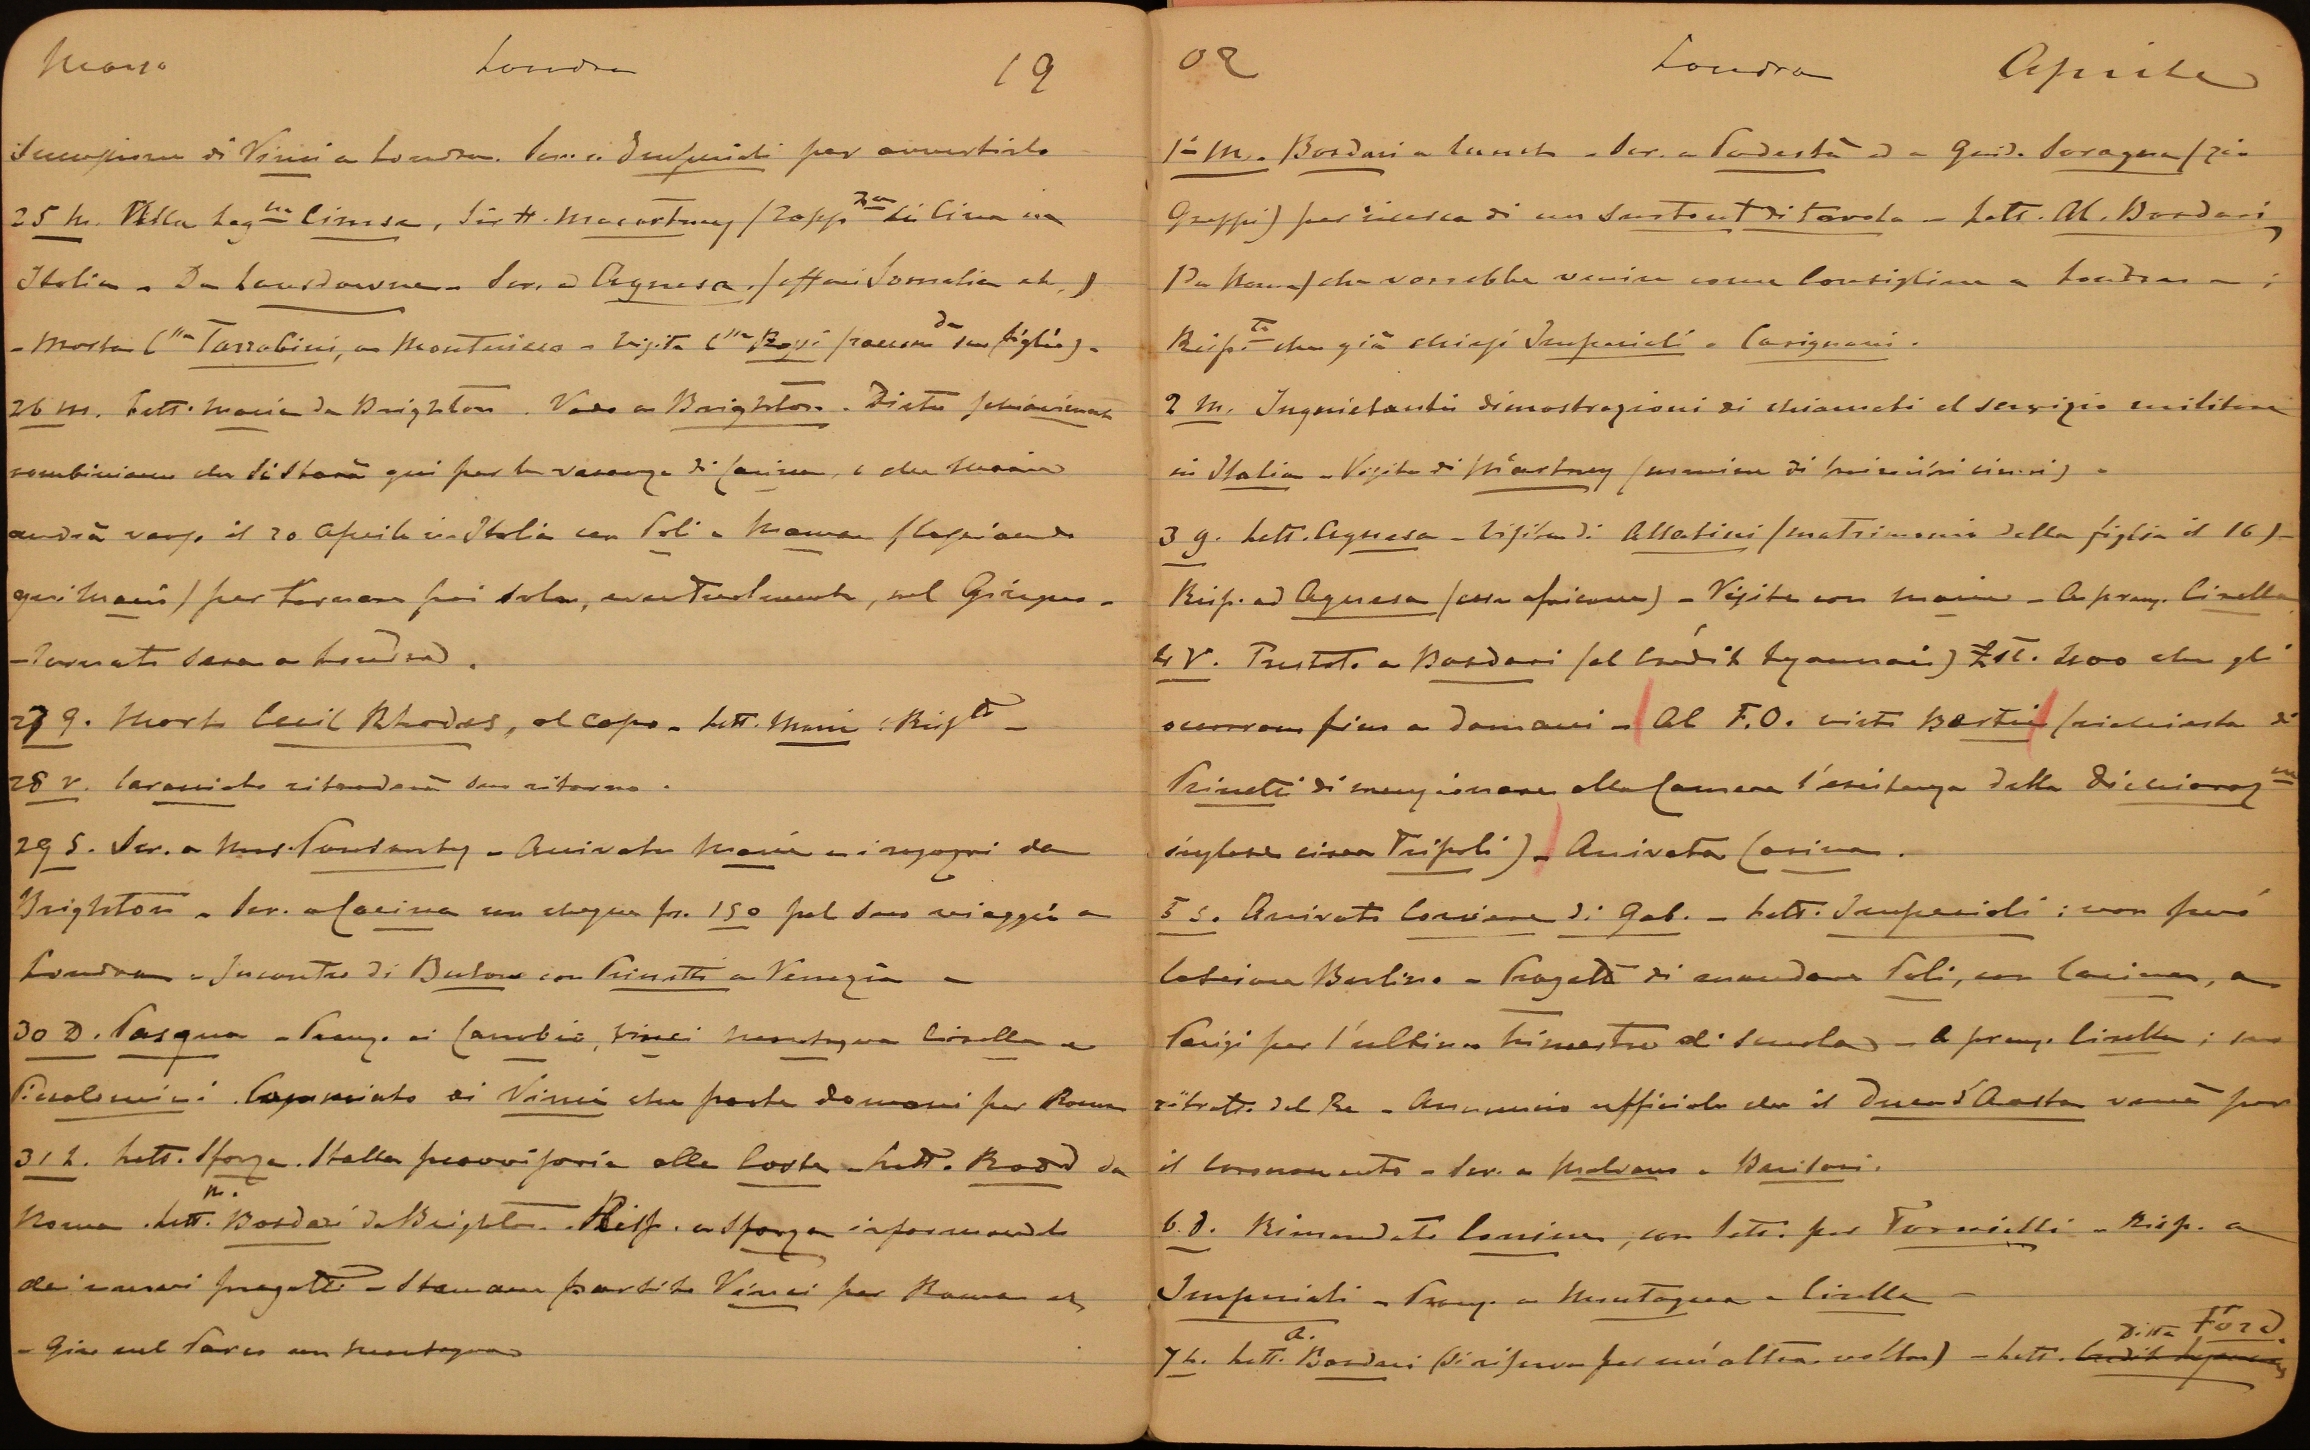 Marzo Londra 19
Successione di Vinci a Londra. Scr. a Imperiali per avvertirlo
25 M. Alla Leg.ne Cinese, Sir H. Macartney (rapp.za di Cina in
Italia - Da Lansdowne - Scr. ad Agnesa (affari Somalia etc.)
- Morta C.ssa a Montericco - visita C.ssa (sua figlia) -
26 m. Lett. Maria da Brighton. Vado a Brighton. Dietro
combiniamo che si starà qui per le vacanze di Carina, e che Maria
andrà verso il 20 Aprile in Italia con Poli a (lasciando
qui ) per tornare poi sola, eventualmente, nel Giugno -
- Tornato sera a Londra.
27 g. Morto Cecil Rhodes, al Capo - Lett. : Risp.to -
28 v. Caraciolo ritarderà suo ritorno.
29 S. Scr. a Mrs. - Arrivata Maria e i ragazzi da
Brighton - Scr. a Carina con cheque fr. 150 pel suo viaggio a
Londra - Incontro di Bulow con Prinetti a Venezia -
30 D. Pasqua - Pranz. ai Cambio, Vinci Montagna Cirella e
Piccolomini. Commiato di Vinci che parte domani per Roma
31 L. Lett. Sforza. Stalla provvisoria alla Corte - Lett. Rodd da
Roma. Lett. M. Bordari da Brighton. Risp. a Sforza informando
dei nuovi progetti - Stamane partito Vinci per Roma etc
- Giro nel Parco con Montagna
02 Londra Aprile
1° M. Bordari a lunch - Scr. a Podestà ed a Guid. Soragna (zio
Greppi) per ricerca di un Surtout di tavola - Lett. Al. Bordari
(da Roma) che vorrebbe venire come Consigliere a Londra - ;
Risp.to che già chiesi Imperiali e Carignani.
2 M. Inquietanti dimostrazioni di chiamati al servizio militare
in Italia - Visita di M'cartney (miniere di cinesi) -
3 g. Lett. Agnesa - Visita di Allatini (matrimonio della figlia il 16) -
Risp. ad Agnesa (cose africane) - Visite con Maria - A pranz. Cirella
4 V. Prestito a Bordari (al Crédit Lyonnais) Lst. 400 che gli
occorrono fino a domani - Al F.O. visto Bertie (richiesta di
Prinetti di menzionare alla Camera l'esistenza della dichiaraz.ne
inglese circa Tripoli) - Arrivata Carina.
5 S. Arrivato Corriere di Gab. - Lett. Imperiali : non può
lasciare Berlino - Progetto di mandare Poli, con Carina, a
Parigi per l'ultimo trimestre di scuola - A pranz. Cirella ; suo
ritratto del Re - Annuncio ufficiale che il Duca d'Aosta verrà per
il coronamento - Scr. a Malvano e Barilari.
6. D. Rimandato Corriere, con lett. per Tornielli - Risp. a
Imperiali - Pranz. a Montagna e Cirella -
7 L. Lett. A. Bordari (si riserva per un'altra volta) - Lett. Ditta Ford. Crédit Lyonnais